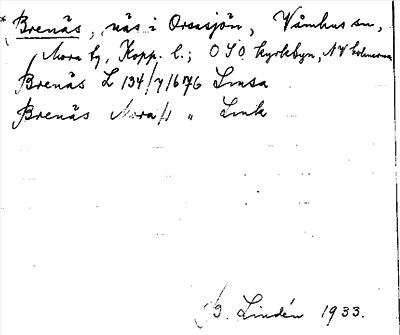 * Brenäs, näs i Orsasjön, Våmhus sn,
Mora tg, Kopp. l.; OSO kyrkbyn, NV holmarna
Brenäs L 134/ 1676 Lmsa
Brenäs Mora/1 " Lmk
B. Lindén 1933.